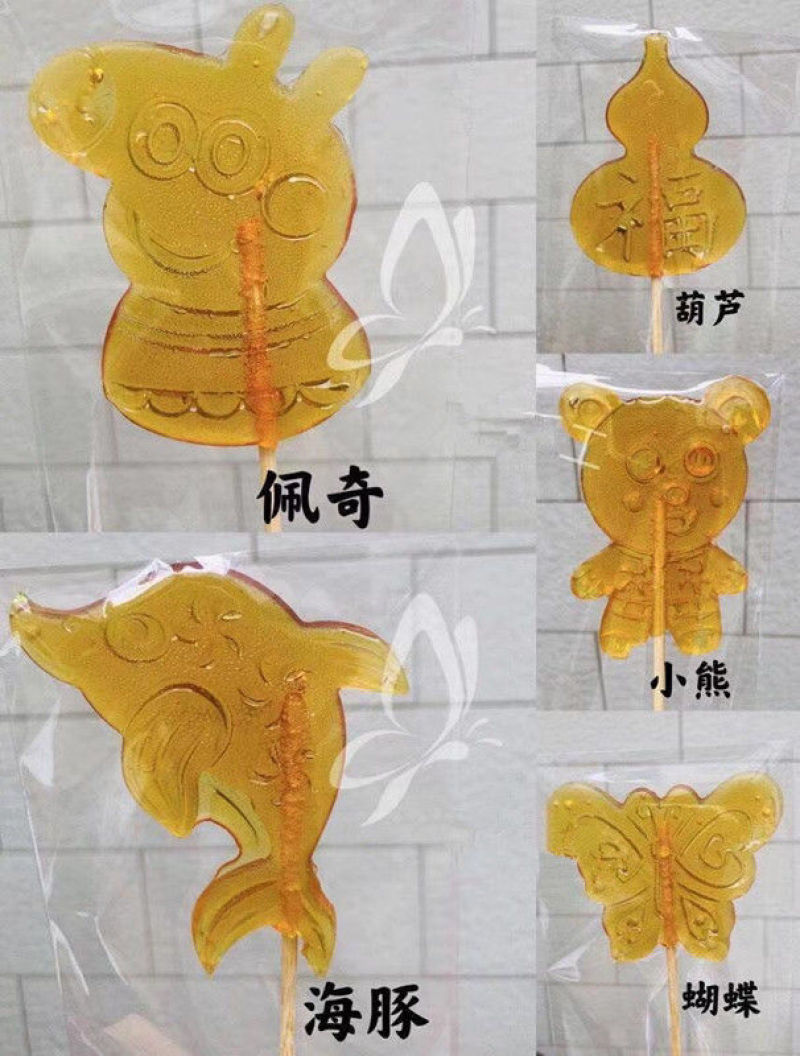 福
葫芦
佩奇
小熊
海豚
蝴蝶